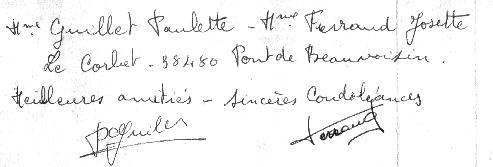 Mme Guillet Paulette - Mme Ferraud Josette
Le Corbet - 38480 Pont de Beauvoisin.
Meilleures amitiés - sincères Condoléances
PGuillet Ferraud